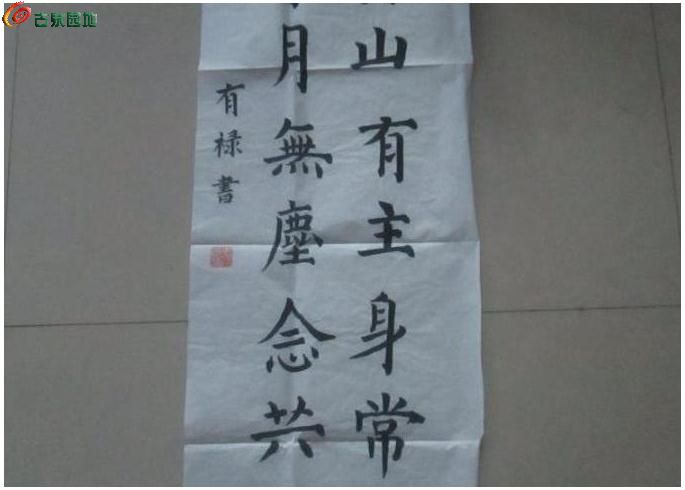 山有主身常
月無塵念共
有祿書
古泉园地